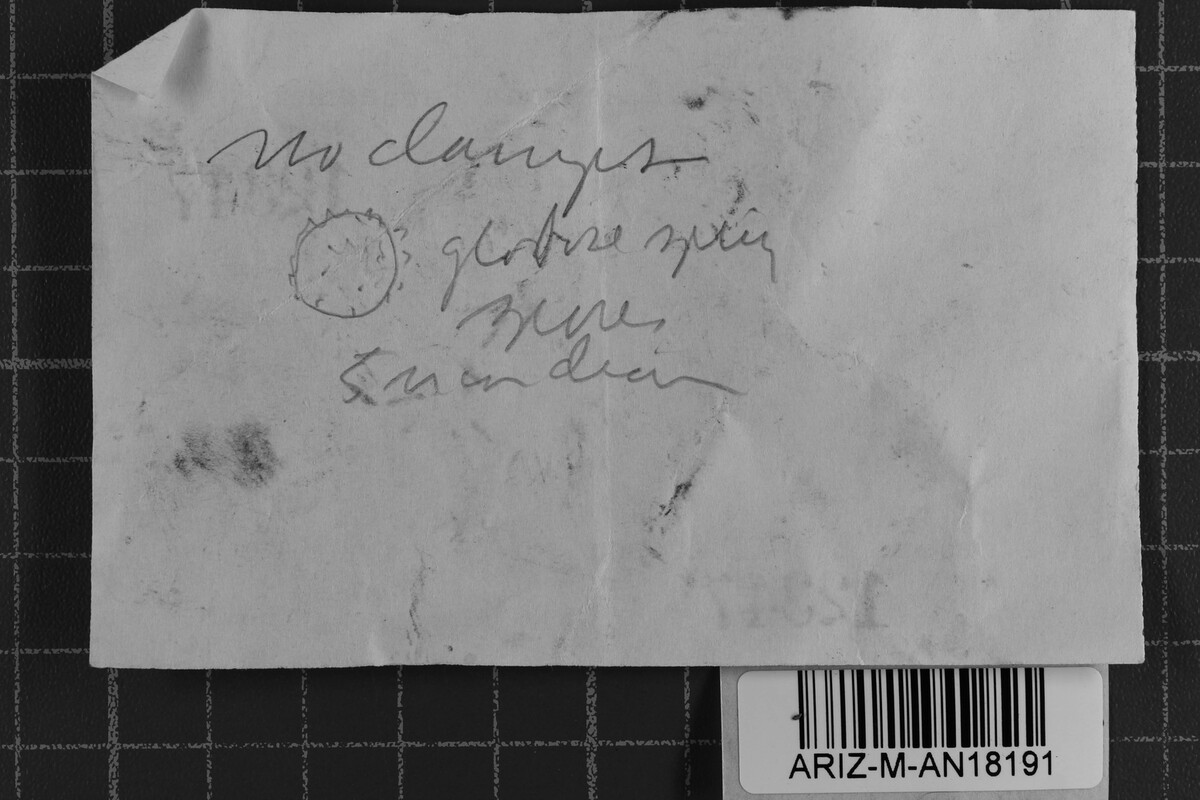 no clamps
globose spiny
spores
5 u in diam
ARIZ-M-AN18191